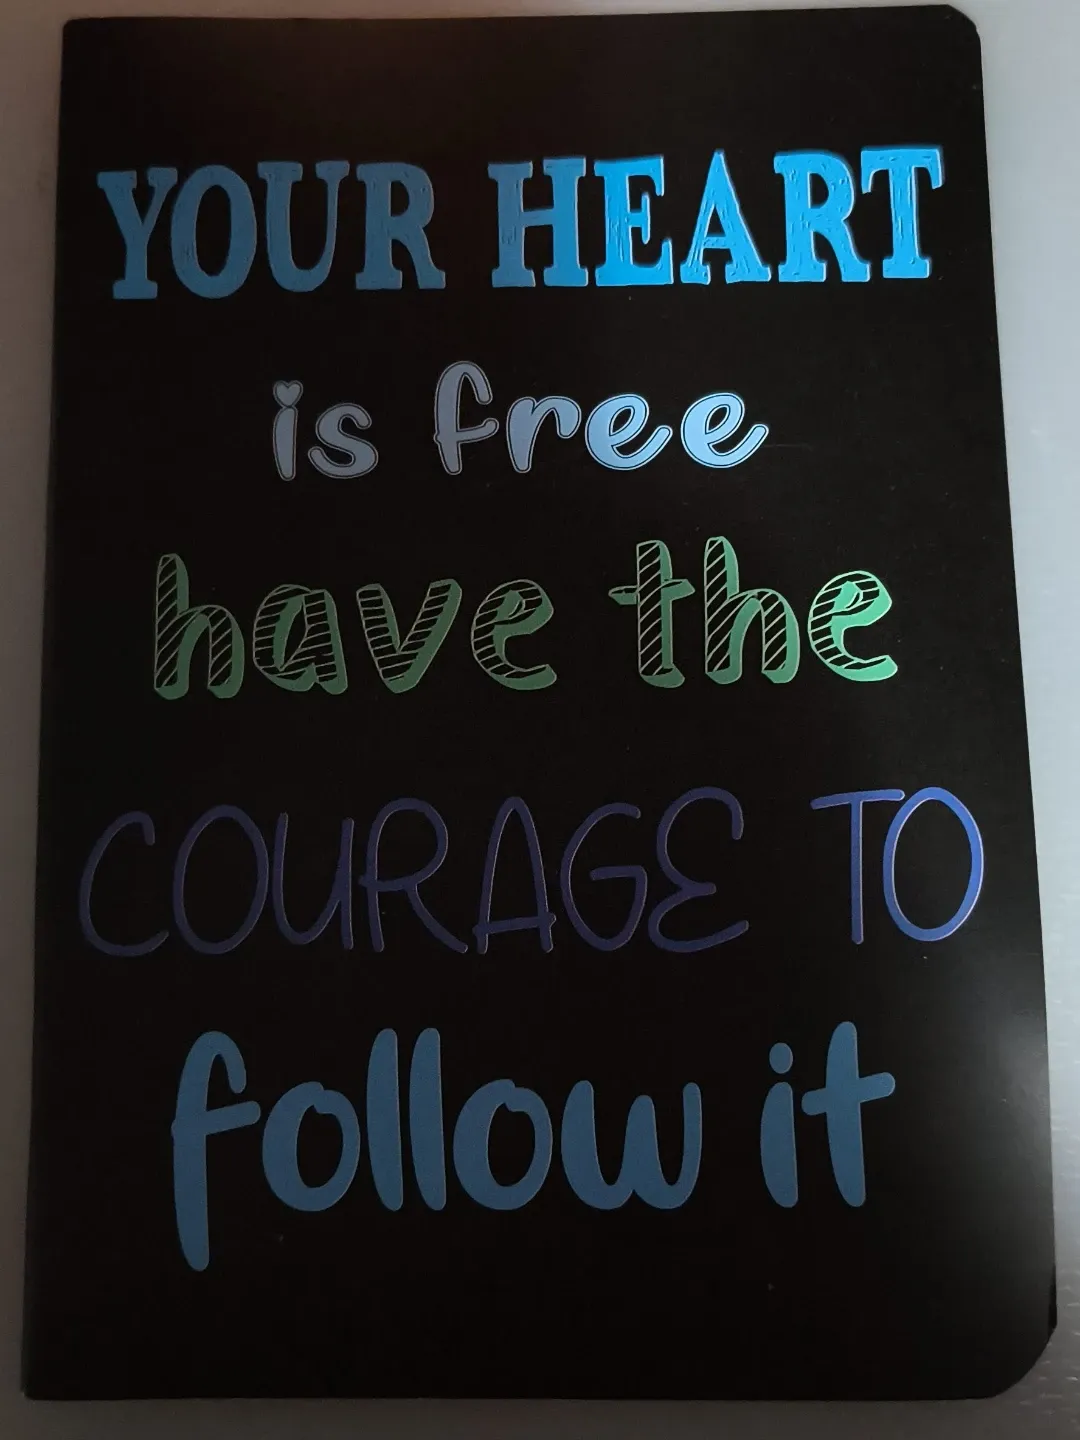 YOUR HEART
is free
have the
COURAGE TO
follow it